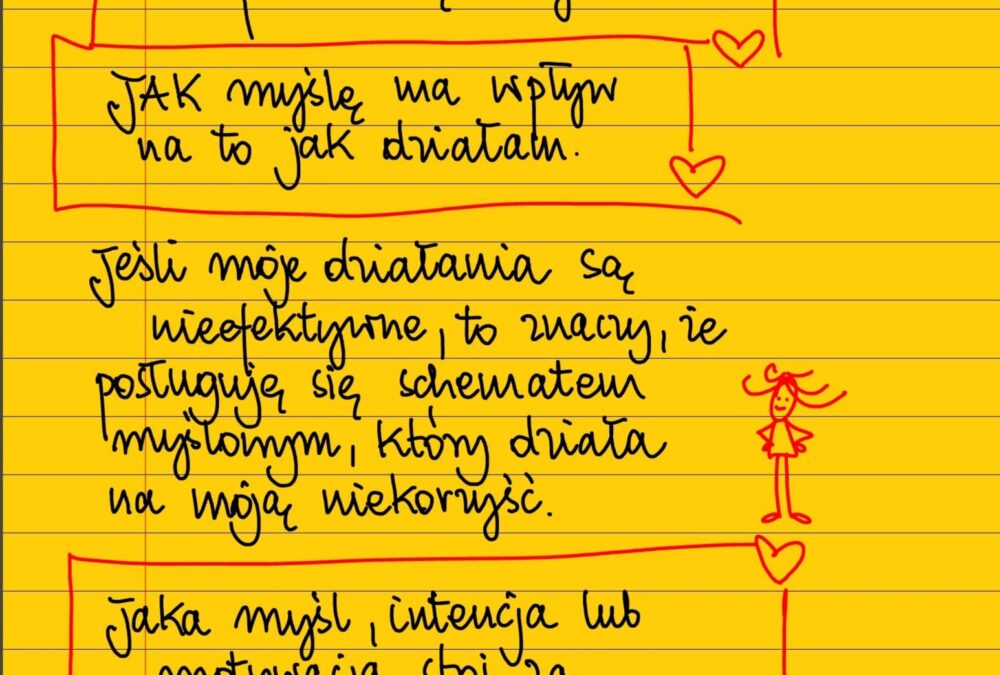 JAK myślę ma wpływ
na to jak działam.
Jeśli móje działania są
nieefektywne, to znaczy, że
posługuję się schematem
myślowym, który działa
na móją niekorzyść.
Jaka myśl, intencja lub
motywacja stoi za